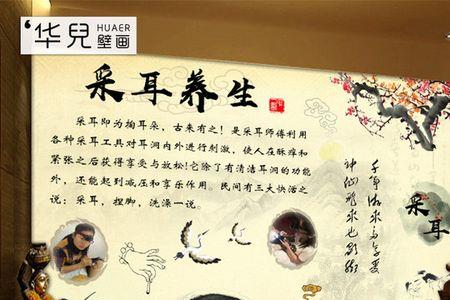 华兒 HUAER
壁画
采耳养生
采耳即为掏耳朵，古来有之！是采耳师傅利用
各种采耳工具对耳洞内外进行刺激，使人在酥痒和
紧张之后获得享受与放松!它除了有清洁耳洞的功能
外，还能起到减压和享乐作用。民间有三大快活之
说：采耳，捏脚，洗澡一说。
采耳